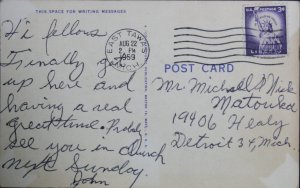 THIS SPACE FOR WRITING MESSAGES
Hi fellows
Finally got
up here and
having a real
great time. Probably
see you in church
next Sunday.
John
EAST TAWAS
AUG 22
2 PM
1959
MICH.
U.S. POSTAGE 3¢
POST CARD
Mr. Michael & Nick
Matouka
19406 Healy
Detroit 34, Mich